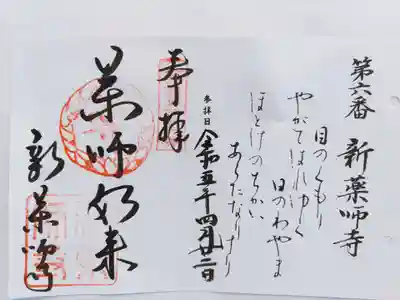 第六番 新薬師寺
目のくもり
やがてはれゆく
日のわやま
ほとけのちかい
あらたなりけり
参拝日
令和五年四月廿二日
奉拝
薬師如来
新薬師寺